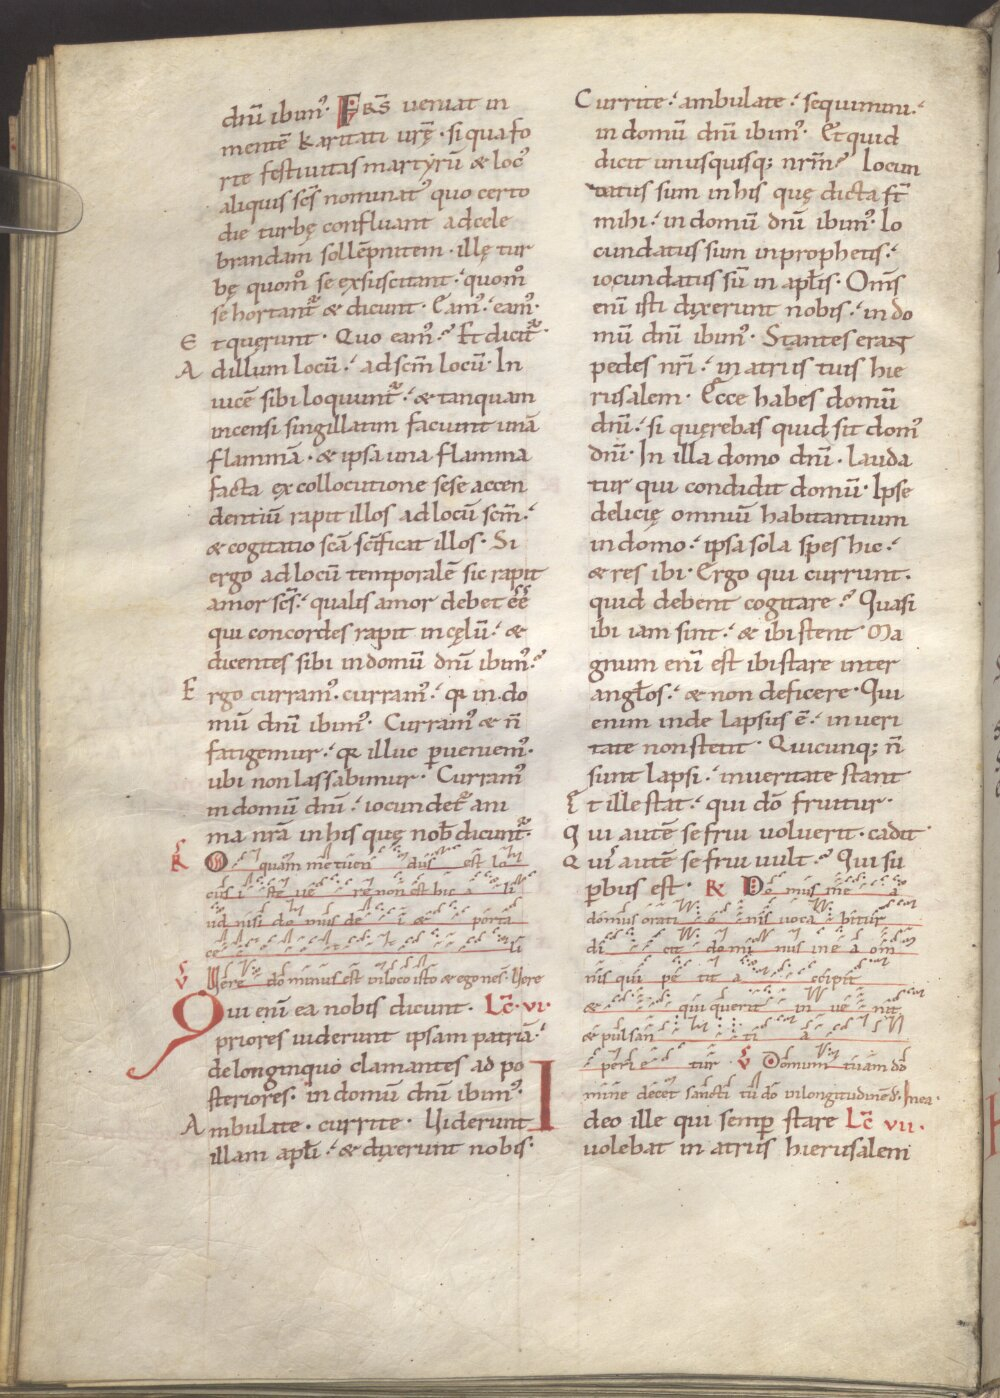 dnū ibim᾽. FRS̄ veniat in
mentē karitati vrę̄. si qua fo
rte festivitas martyrū & loc᾽
aliquis scs̄ nominat᾽ quo certo
die turbę confluant ad cele
brandam sollēpnitem. illę tur
bę quom̄ se exsuscitant. quom̄
se hortant᾽ & dicunt. Eam᾽. eam᾽.
Et quęrunt. Quo eam᾽? Et dicit᾽.
Ad illum locū. ad scm̄ locū. In
vicē sibi loquunt᾽. & tanquam
incensi singillatim faciunt unā
flammā. & ipsa una flamma
facta ex collocutione sese accen
dentiū rapit illos ad locū scm̄.
& cogitatio scā scīficat illos. Si
ergo ad locū temporalē sic rapit
amor scs̄. qualis amor debet eē
qui concordes rapit in cęlū. &
dicentes sibi in domū dnī ibim᾽?
Ergo curram᾽. curram᾽. qr in do
mū dnī ibim᾽. Curram᾽ & n̄
fatigemur. qr illuc pveniem᾽.
ubi non lassabimur. Curram᾽
in domū dnī. iocundet᾽ ani
ma nrā in his quę nob̄ dicunt᾽.
R O quam metuen dus est lo
cus iste ve re non est hic a li
ud nisi do mus de i & porta
ce li
V Vere dominus est in loco isto & ego nes. Vere
Qui enī ea nobis dicunt. Lc̄. vi.
priores viderunt ipsam patriā.
de longinquo clamantes ad po
steriores. in domū dnī ibim᾽.
Ambulate. currite. Viderunt
illam aplī. & dixerunt nobis.
Currite. ambulate. sequimini.
in domū dnī ibim᾽. Et quid
dicit unusquisq; nrm̄? Iocun
datus sum in his quę dicta st̄
mihi. in domū dnī ibim᾽. Io
cundatus sum in prophetis.
iocundatus sū in aplīs. Om̄s
enī isti dixerunt nobis. in do
mū dnī ibim᾽. Stantes erant
pedes nrī. in atriis tuis hie
rusalem. Ecce habes domū
dnī. si quęrebas quid sit dom᾽
dnī. In illa domo dnī. lauda
tur qui condidit domū. Ipse
delicię omniū habitantium
in domo. ipsa sola spes hic.
& res ibi. Ergo qui currunt.
quid debent cogitare? Quasi
ibi iam sint. & ibi stent. Ma
gnum enī est ibi stare inter
anglos. & non deficere. Qui
enim inde lapsus ē. in veri
tate non stetit. Quicunq; n̄
sunt lapsi. in veritate stant
Et ille stat. qui dō fruitur.
Qui autē se frui voluerit. cadit
Qui autē se frui vult? Qui su
pbus est. R Do mus me a
domus orati o nis voca bitur
di cit domi nus in e a om
nis qui pe tit a ccipit
& qui querit in ve nit
& pulsan ti a
peri e tur. V Domum tuam do
mine decet sancti tu dō in longitudinē d. In ea.
Ideo ille qui semp stare Lc̄ vii.
volebat in atriis hierusalem